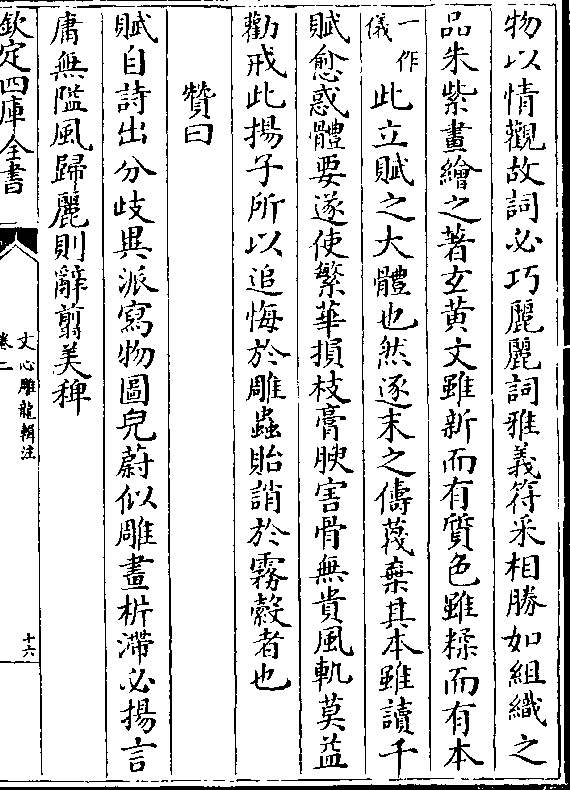 物以情觀故詞必巧麗麗詞雅義符采相勝如組織之
品朱紫畫繪之著玄黄文雖新而有質色雖糅而有本
一作儀此立賦之大體也然逐末之儔蔑棄其本雖讀千
賦愈惑體要遂使繁華損枝膏腴害骨無貴風軌莫益
勸戒此揚子所以追悔於雕蟲貽誚於霧縠者也
贊曰
賦自詩出分歧異派寫物圖皃蔚似雕畫枿滯必揚言
庸無隘風歸麗則辭翦美稗
欽定四庫全書
文心雕龍輯注
卷二
十六